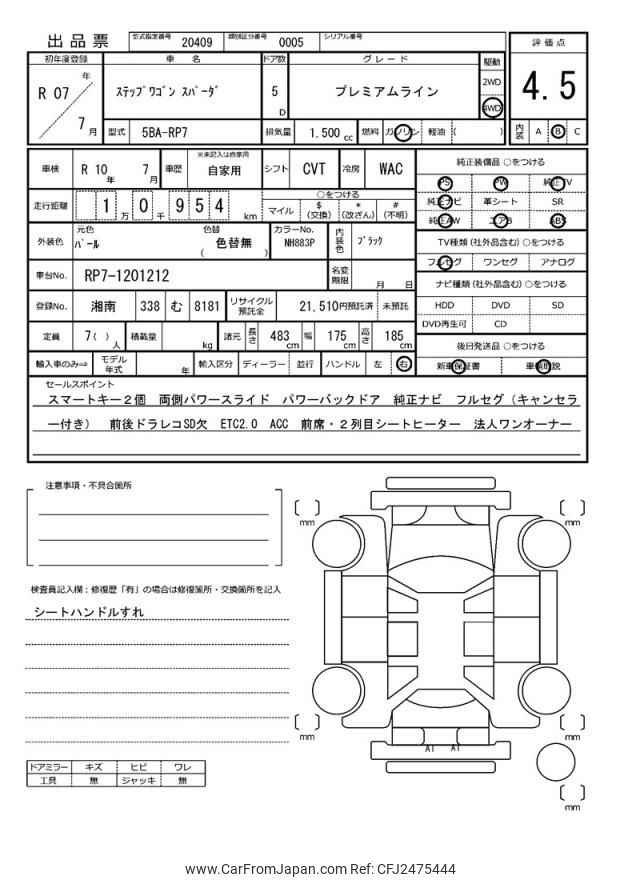 出品票 型式指定番号 20409 類別区分番号 0005 シリアル番号
評価点
初年度登録 車名 ドア数 グレード 駆動
R 07 年 ステップワゴン スパーダ 5 D プレミアムライン 2WD 4WD 4.5
7 月 型式 5BA-RP7 排気量 1.500 cc 燃料 ガソリン 軽油 ( ) 内装 A B C
車検 R 10 年 7 月 車歴 ※未記入は自家用 自家用 シフト CVT 冷房 WAC
走行距離 1 万 0 千 9 5 4 km ○をつける マイル $ (交換) * (改ざん) # (不明)
外装色 元色 パール 色替 ( 色替無 ) カラーNo. NH883P 内装色 ブラック
車台No. RP7-1201212 名変期限 月 日
登録No. 湘南 338 む 8181 リサイクル預託金 21,510円預託済 未預託
定員 7( ) 人 積載量 kg 諸元 長さ 483 cm 幅 175 cm 高さ 185 cm
輸入車のみ⇒ モデル年式 年 輸入区分 ディーラー 並行 ハンドル 左 右
純正装備品 ○をつける
PS PW 純正TV
純正ナビ 革シート SR
純正AW エアB ABS
TV種類 (社外品含む) ○をつける
フルセグ ワンセグ アナログ
ナビ種類 (社外品含む) ○をつける
HDD DVD SD
DVD再生可 CD
後日発送品 ○をつける
新車保証書 車輌取説
セールスポイント
スマートキー２個 両側パワースライド パワーバックドア 純正ナビ フルセグ（キャンセラ
ー付き） 前後ドラレコSD欠 ETC2.0 ACC 前席・２列目シートヒーター 法人ワンオーナー
注意事項・不具合箇所
検査員記入欄：修復歴「有」の場合は修復箇所・交換箇所を記入
シートハンドルすれ
ドアミラー キズ ヒビ ワレ
工具 無 ジャッキ 無
[ ] mm
[ ] mm
[ ] mm
[ ] mm
A1 A1
[ ] mm
www.CarFromJapan.com Ref: CFJ2475444